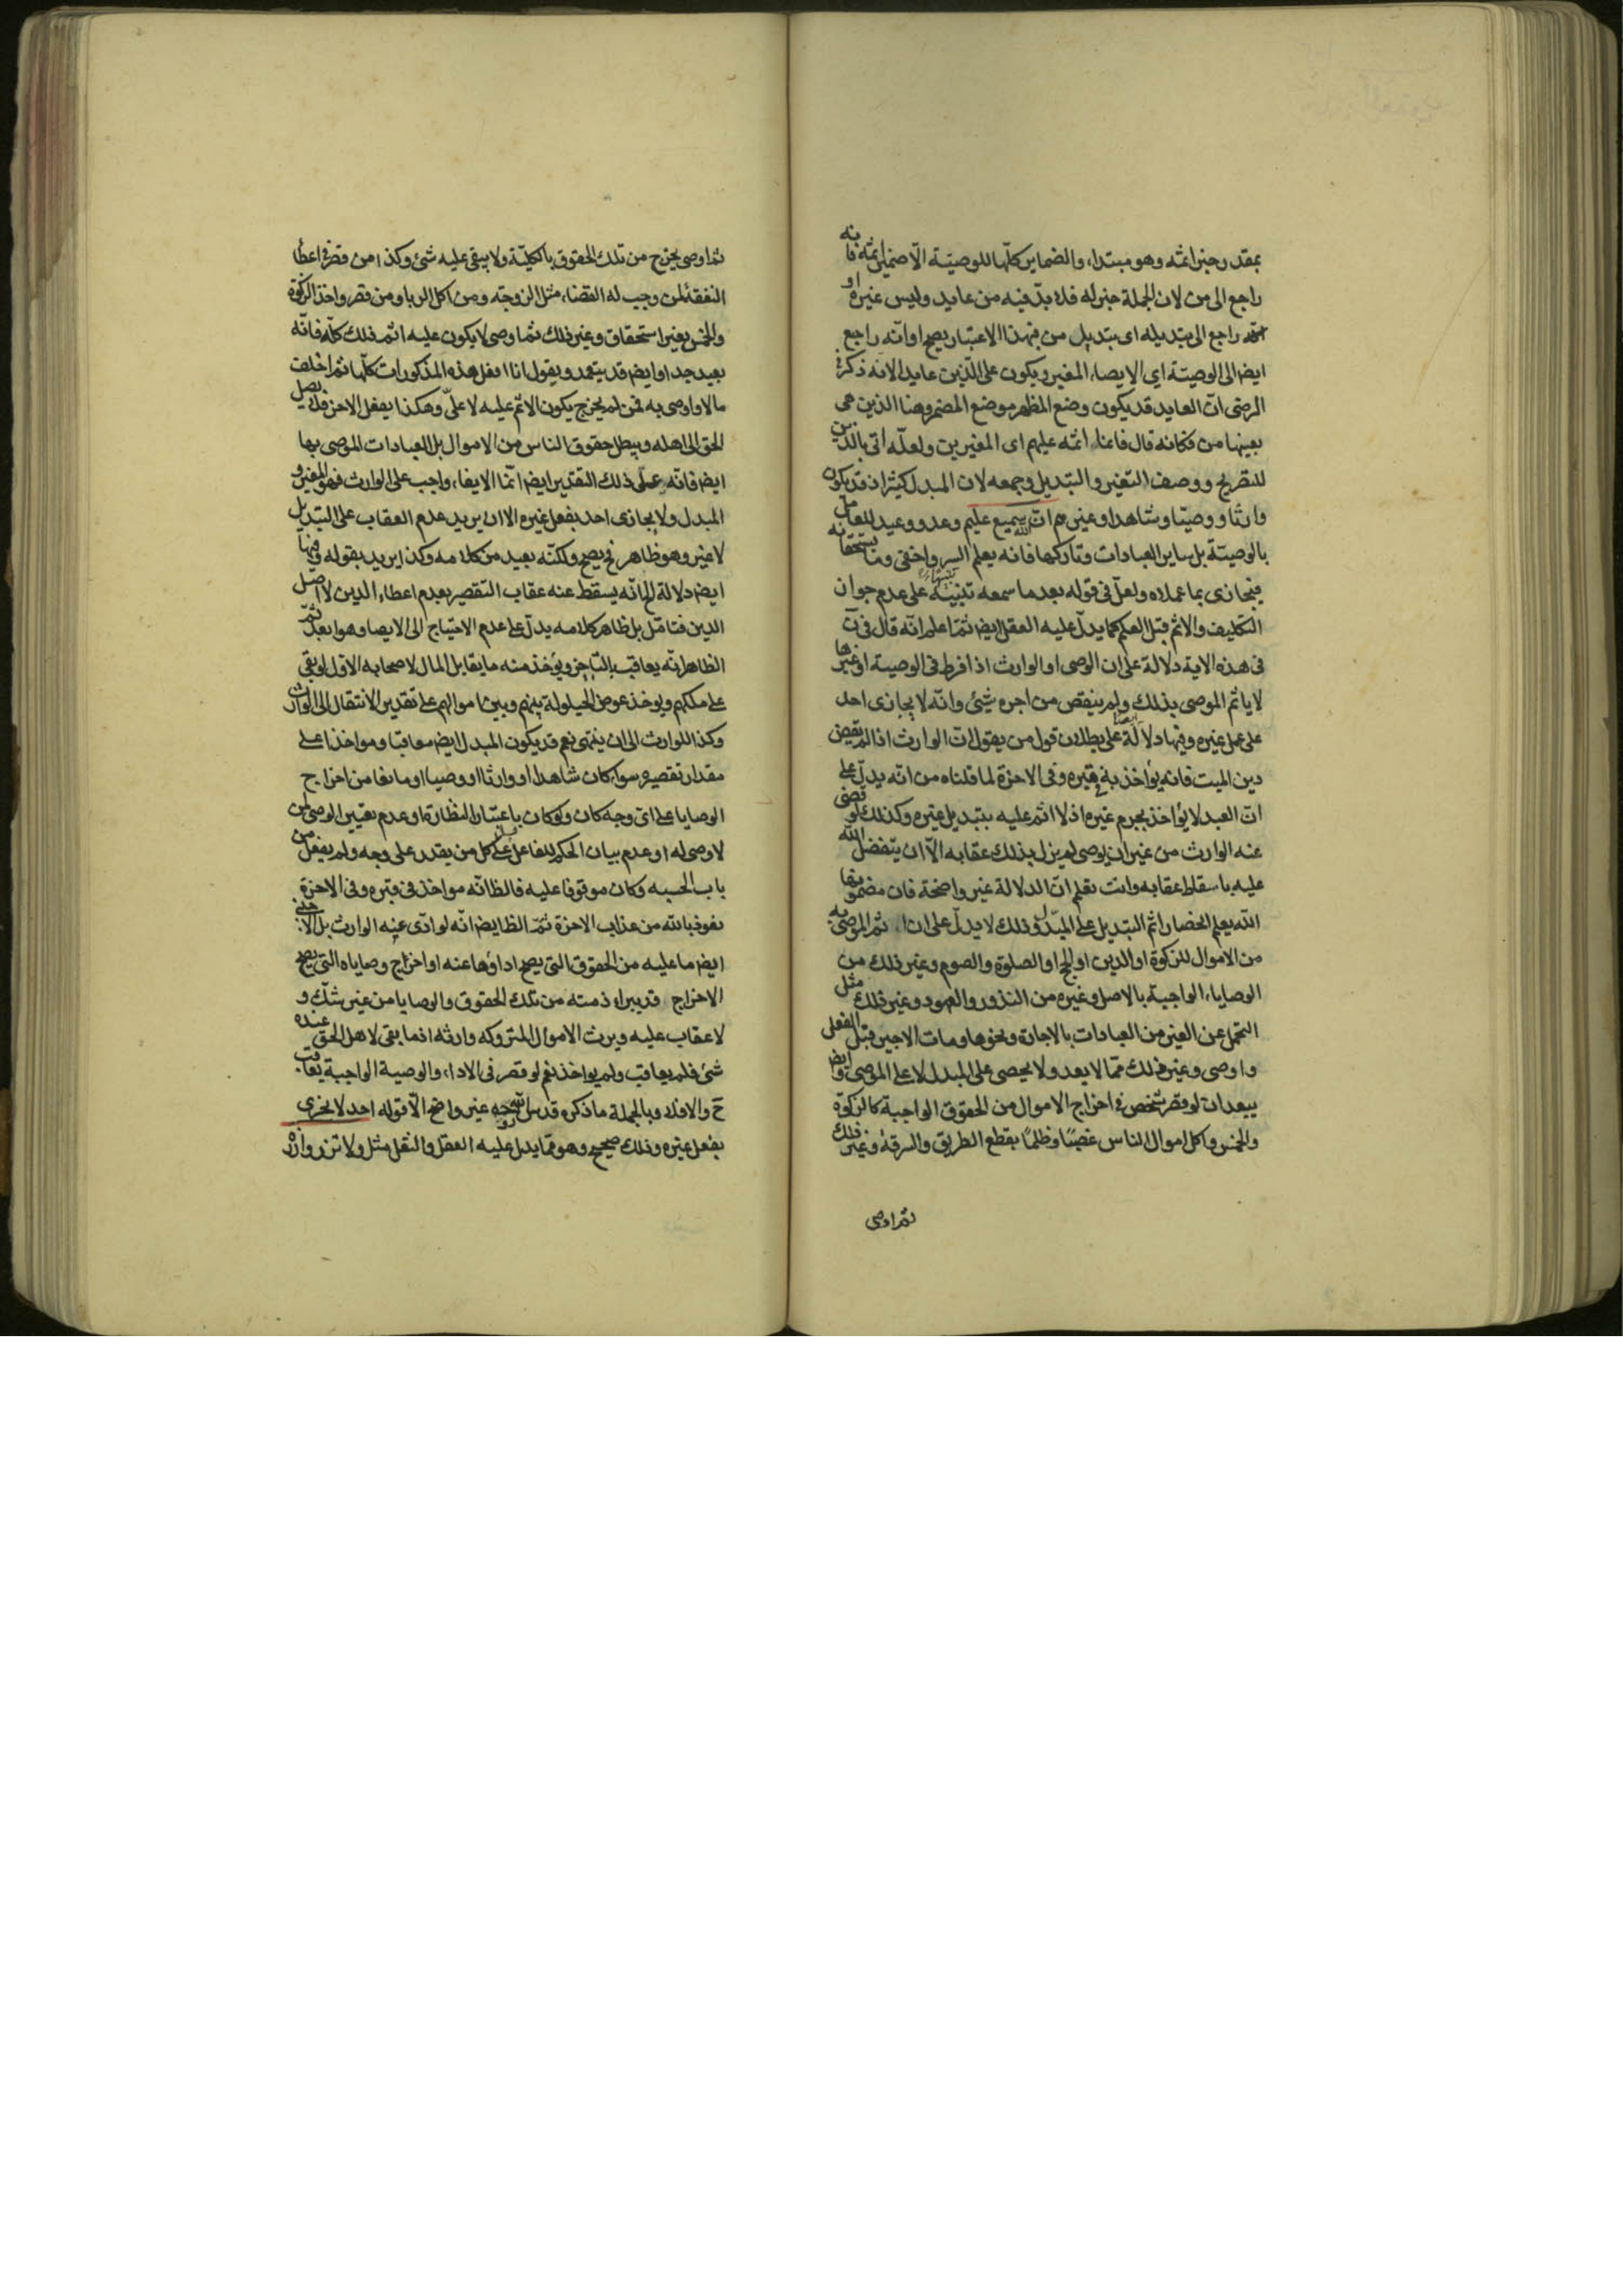 بمقدر خبر اثمه وهو مبتداء والضماير كلها للوصيّة الّا ضمير اثمه فانه
راجع الى من لان الجملة خبر له فلا بدّ فيه من عايد وليس غيره او
انه راجع الى تبديله اى تبديل من فبهذا الاعتبار يصح او انّه راجع
ايض الى الوصيّة اي الايصاء المغير ويكون على الذّين عايد الانه ذكر
الرضى انّ العايد قد يكون وضع المظهر موضع المضمر وهنا الذين هى
بعينها من فكانه قال فانما اثمه عليهم اى المغيرين ولعلّه اتى بالذين
للتصريح ووصف التغير والتبديل وجمعه لان المبدل كثير اذ قد يكون
وارثا ووصيّا وشاهدا وغيرهم انّ الله سميع عليم وعد ووعيد للعامل
بالوصيّة بل ساير العبادات وتاركها فانه يعلم السر واخفى وما يستحقانه
فيجازى بما عملاه ولعلّ فى قوله بعد ما سمعه تنبيه على عدم جواز
التكليف والاثم قبل العلم كما يدلّ عليه العقل ايض ثمّ اعلم انّه قال فى ن
فى هذه الاية دلالة على ان الوصى او الوارث اذا فرط فى الوصية او غيرها
لا ياثم الموصى بذلك ولم ينقص من اجره شيئ وانّه لا يجازى احد
على عمل غيره وفيها دلالة على بطلان قول من يقول انّ الوارث اذا لم يقض
دين الميت فانه يؤاخذ به فى قبره وفى الاخرة لما قلناه من انّه يدلّ على
انّ العبد لا يؤاخذ بجرم غيره اذ لا اثم عليه بتبديل غيره وكذلك لو قضى
عنه الوارث من غير ان يوصى لم يزل بذلك عقابه الّا ان يتفضل الله
عليه باسقاط عقابه وانت تعلم انّ الدلالة غير واضحة فان مضمونها
الله يعلم الحصار اثم التبديل على المبدّل وذلك لا يدلّ على ان اثم الموصى به
من الاموال للزكوة او الدين او الحج او الصلوة والصوم وغير ذلك من
الوصاياء الواجبة بالاصل وغيره من النذور والعهود وغير ذلك مثل
التحمل عن الغير من العبادات بالاجارة ونحوها ومات الاجير قبل الفعلى
واوصى وغير ذلك ممّا لا يعد ولا يحصى على المبدل لا على الموصى وايض
يبعد ان لو قصر شخص فى اخراج الاموال من الحقوق الواجبة كالزكوة
والخمس واكل اموال الناس غصبًا وظلمًا بقطع الطريق والسرقة وغير ذلك
ثم اوصى
ثم اوصى يخرج من تلك الحقوق بالكليّة ولا يبقى عليه شئ وكذا من قصر فى اعطأ
النفقة لمن وجب له القضاء مثل الزوجة ومن اكل الربا ومن قصر واخذ الزكوة
والخمس بغير استحقاق وغير ذلك ثم اوصى لا يكون عليه اثم ذلك كلّه فانّه
بعيد جدا وايض قد يتعمد ويقول انا افعل هذه المذكورات كلّها ثم اخلف
مالا واوصى به فمن لم يخرج يكون الاثم عليه لا علىّ وهكذا يفعل الاخر فلا يصل
الحق الى اهله ويبطل حقوق الناس من الاموال بل العبادات الموصى بها
ايض فانّه على ذلك التقدير ايض انّما الايفاء واجب على الوارث فهو المغير و
المبدل ولا يجازى احد بفعل غيره الا ان يريد عدم العقاب على التبديل
لا غير وهو ظاهر فح يصح ولكنّه بعيد من كلامه وكذا يريد بقوله وفيها
ايض دلالة الخ انّه يسقط عنه عقاب التقصير بعدم اعطاء الدين لا اصل
الدين فتامّل بل ظاهر كلامه يدلّ على عدم الاحتياج الى الايصا وهو ابعد ثمّ
الظاهر انّه يعاقب بالتاخير ويؤخذ منه ما يقابل المال لاصحابه الاول لو بقى
على ملكهم ويوخذ عوض الحيلولة بينهم وبين اموالهم على تقدير الانتقال الى الوارث
وكذا للوارث الى ان ينتهى نعم قد يكون المبدل ايض معاقبا ومواخذا على
مقدار تقصيره سواء كان شاهدا او وارثا او وصيا او مانعا من اخراج
الوصايا على اى وجه كان ولو كان باعتبار النظارة او عدم تعيين الوصى لمن
لا وصى له او عدم بيان الحكم للفاعل بل على كل من يقدر على وجه ولم يفعل من
باب الحسبه وكان موقوفا عليه فالظ انّه مواخذ فى قبره وفى الاخرة
نعوذ بالله من عذاب الاخرة ثمّ الظ ايض انّه لو ادّى عنه الوارث بل الاجنبى
ايض ما عليه من الحقوق التى يصح اداؤها عنه او اخراج وصاياه التى يصح
الاخراج قد يبراء ذمته من تلك الحقوق والوصايا من غير شكّ و
لا عقاب عليه ويرث الاموال المتروكه وارثه اذ ما بقى لاهل الحق عنده
شئ فلم يعاقب ولم يواخذ نعم لو قصر فى الاداء والوصية الواجبة يعاقب
ح والافلا وبالجملة ما ذكره قدس الله روحه غير واضح الّا قوله احد لا يجزى
بفعل غيره وذلك صحيح وهو ممّا يدل عليه العقل والنقل مثل ولا تزر وازرة